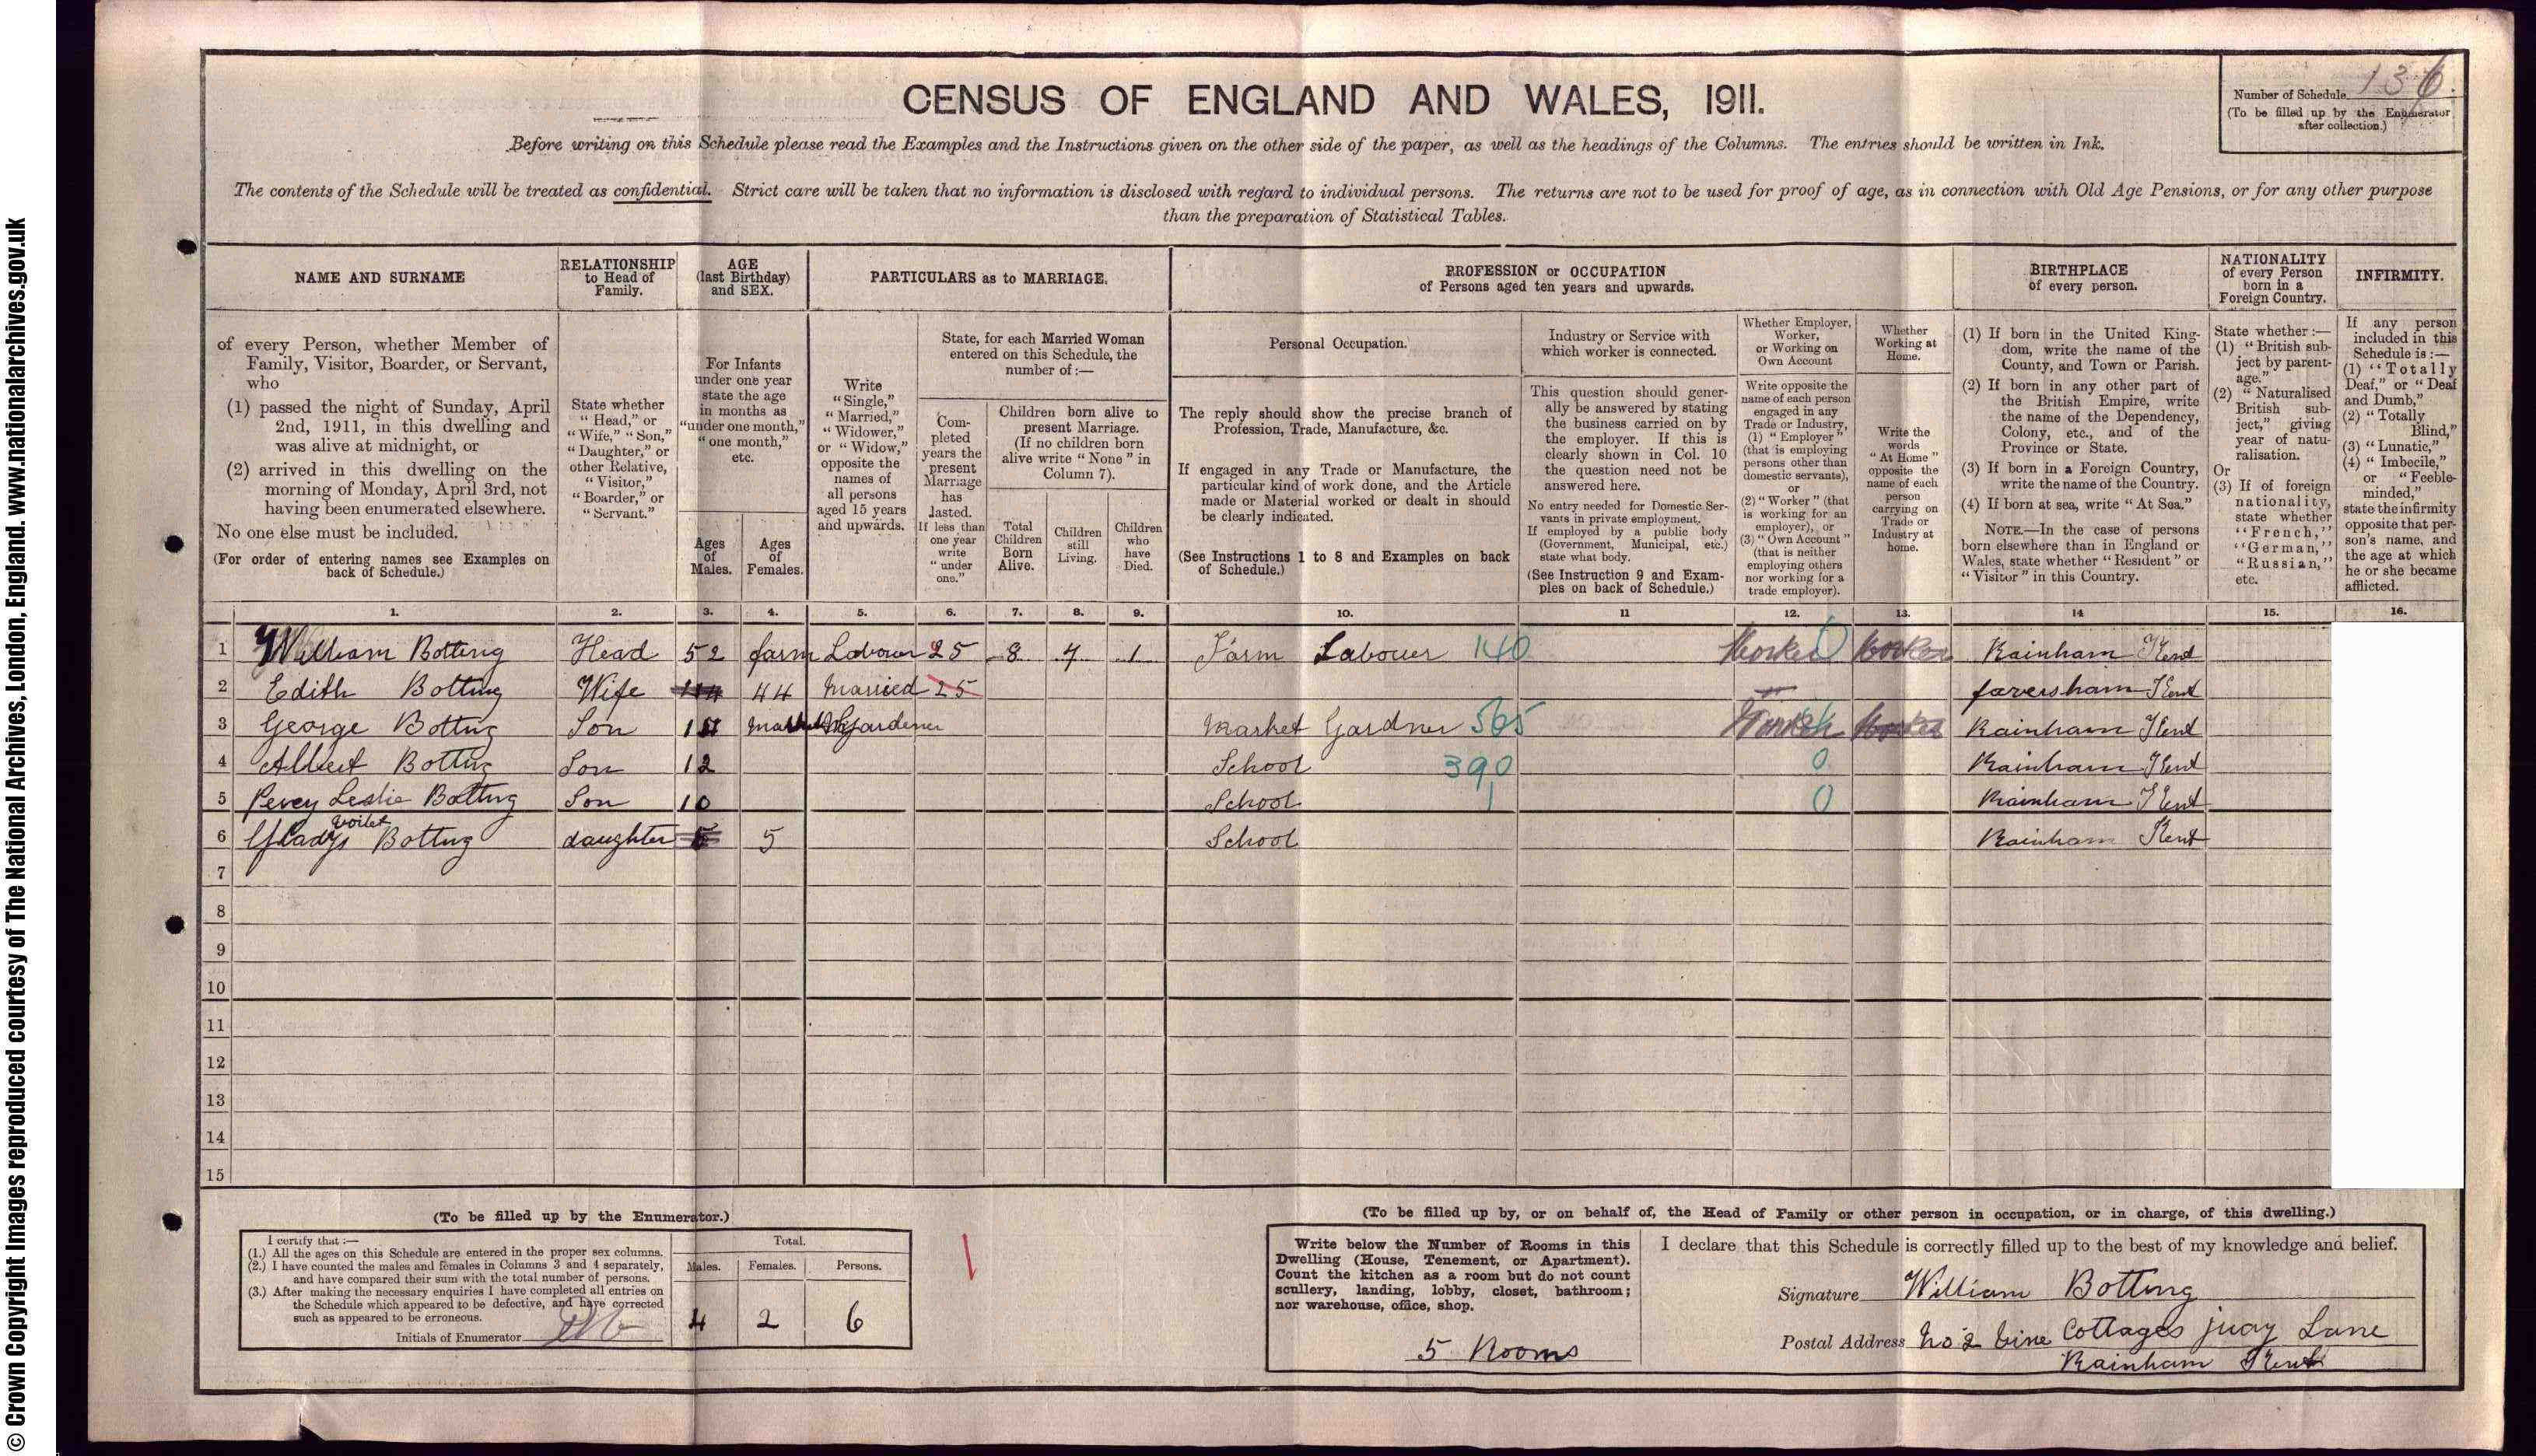 © Crown Copyright Images reproduced courtesy of The National Archives, London, England. www.nationalarchives.gov.uk
CENSUS OF ENGLAND AND WALES, 1911.
Number of Schedule 136.
(To be filled up by the Enumerator
after collection.)
Before writing on this Schedule please read the Examples and the Instructions given on the other side of the paper, as well as the headings of the Columns. The entries should be written in Ink.
The contents of the Schedule will be treated as confidential. Strict care will be taken that no information is disclosed with regard to individual persons. The returns are not to be used for proof of age, as in connection with Old Age Pensions, or for any other purpose
than the preparation of Statistical Tables.
NAME AND SURNAME
of every Person, whether Member of
Family, Visitor, Boarder, or Servant,
who
(1) passed the night of Sunday, April
2nd, 1911, in this dwelling and
was alive at midnight, or
(2) arrived in this dwelling on the
morning of Monday, April 3rd, not
having been enumerated elsewhere.
No one else must be included.
(For order of entering names see Examples on
back of Schedule.)
RELATIONSHIP
to Head of
Family.
State whether
"Head," or
"Wife," "Son,"
"Daughter," or
other Relative,
"Visitor,"
"Boarder," or
"Servant."
AGE
(last Birthday)
and SEX.
For Infants
under one year
state the age
in months as
"under one month,"
"one month,"
etc.
Ages
of
Males.
Ages
of
Females.
PARTICULARS as to MARRIAGE.
Write
"Single,"
"Married,"
"Widower,"
or "Widow,"
opposite the
names of
all persons
aged 15 years
and upwards.
State, for each Married Woman
entered on this Schedule, the
number of:—
Com-
pleted
years the
present
Marriage
has
lasted.
If less than
one year
write
"under
one."
Children born alive to
present Marriage.
(If no children born
alive write "None" in
Column 7).
Total
Children
Born
Alive.
Children
still
Living.
Children
who
have
Died.
PROFESSION or OCCUPATION
of Persons aged ten years and upwards.
Personal Occupation.
The reply should show the precise branch of
Profession, Trade, Manufacture, &c.
If engaged in any Trade or Manufacture, the
particular kind of work done, and the Article
made or Material worked or dealt in should
be clearly indicated.
(See Instructions 1 to 8 and Examples on back
of Schedule.)
Industry or Service with
which worker is connected.
This question should gener-
ally be answered by stating
the business carried on by
the employer. If this is
clearly shown in Col. 10
the question need not be
answered here.
No entry needed for Domestic Ser-
vants in private employment.
If employed by a public body
(Government, Municipal, etc.)
state what body.
(See Instruction 9 and Exam-
ples on back of Schedule.)
Whether Employer,
Worker,
or Working on
Own Account
Write opposite the
name of each person
engaged in any
Trade or Industry,
(1) "Employer"
(that is employing
persons other than
domestic servants),
or
(2) "Worker" (that
is working for an
employer), or
(3) "Own Account"
(that is neither
employing others
nor working for a
trade employer).
Whether
Working at
Home.
Write the
words
"At Home"
opposite the
name of each
person
carrying on
Trade or
Industry at
home.
BIRTHPLACE
of every person.
(1) If born in the United King-
dom, write the name of the
County, and Town or Parish.
(2) If born in any other part of
the British Empire, write
the name of the Dependency,
Colony, etc., and of the
Province or State.
(3) If born in a Foreign Country,
write the name of the Country.
(4) If born at sea, write "At Sea."
NOTE.—In the case of persons
born elsewhere than in England or
Wales, state whether "Resident" or
"Visitor" in this Country.
NATIONALITY
of every Person
born in a
Foreign Country.
State whether:—
(1) "British sub-
ject by parent-
age."
(2) "Naturalised
British sub-
ject," giving
year of natu-
ralisation.
Or
(3) If of foreign
nationality,
state whether
"French,"
"German,"
"Russian,"
etc.
INFIRMITY.
If any person
included in this
Schedule is:—
(1) "Totally
Deaf," or "Deaf
and Dumb,"
(2) "Totally
Blind,"
(3) "Lunatic,"
(4) "Imbecile,"
or "Feeble-
minded,"
state the infirmity
opposite that per-
son's name, and
the age at which
he or she became
afflicted.
1. 2. 3. 4. 5. 6. 7. 8. 9. 10. 11 12. 13. 14 15. 16.
1 William Botting Head 52 farm Labour 25 8 7 1 Farm Labouer 140 Worker 0 Worker Rainham Kent
2 Edith Botting Wife 44 Married 25 faversham Kent
3 George Botting Son Market Gardener Market Gardner 565 Worker Rainham Kent
4 Albert Botting Son 12 School 390 0 Rainham Kent
5 Percy Leslie Botting Son 10 School 1 0 Rainham Kent
6 Gladys Voilet Botting daughter 5 School Rainham Kent
7
8
9
10
11
12
13
14
15
(To be filled up by the Enumerator.)
I certify that:—
(1.) All the ages on this Schedule are entered in the proper sex columns.
(2.) I have counted the males and females in Columns 3 and 4 separately,
and have compared their sum with the total number of persons.
(3.) After making the necessary enquiries I have completed all entries on
the Schedule which appeared to be defective, and have corrected
such as appeared to be erroneous.
Initials of Enumerator
Total.
Males. Females. Persons.
4 2 6
(To be filled up by, or on behalf of, the Head of Family or other person in occupation, or in charge, of this dwelling.)
Write below the Number of Rooms in this
Dwelling (House, Tenement, or Apartment).
Count the kitchen as a room but do not count
scullery, landing, lobby, closet, bathroom;
nor warehouse, office, shop.
5 Rooms
I declare that this Schedule is correctly filled up to the best of my knowledge and belief.
Signature William Botting
Postal Address No 2 Vine Cottages Lane
Rainham Kent